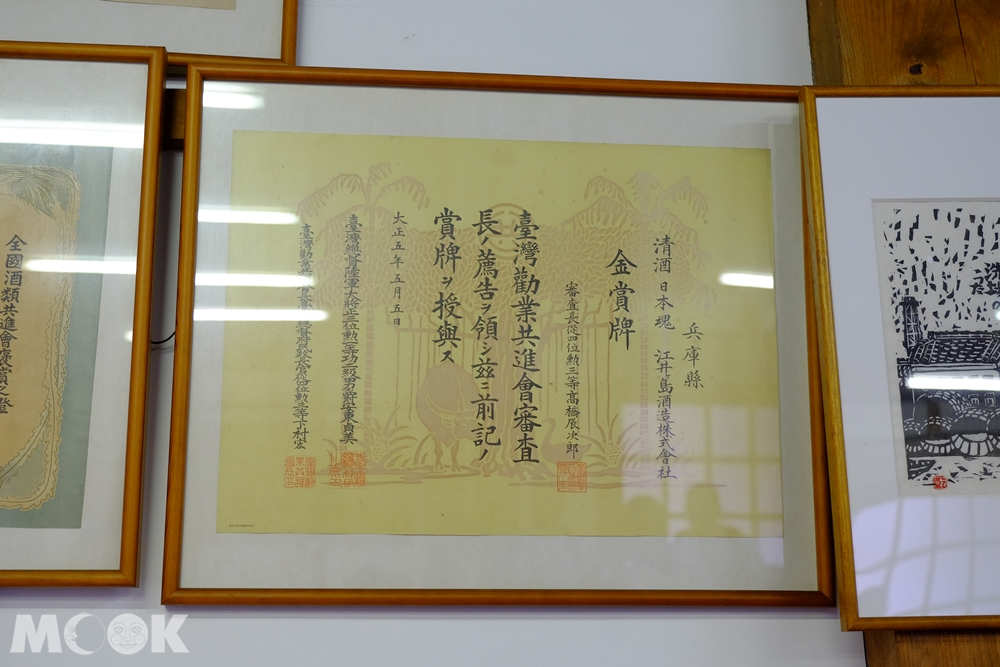 兵庫縣
清酒 日本魂 江井ヶ島酒造株式會社
金賞牌
審査長從四位勲三等高橋辰次郎
臺灣勸業共進會審査
長ノ薦告ヲ領シ茲ニ前記ノ
賞牌ヲ授與ス
大正五年五月五日
臺灣總督陸軍大將正三位勲一等功二級男爵安東貞美
位勲三等下村宏
全國酒類共進會褒賞之證
MOOK